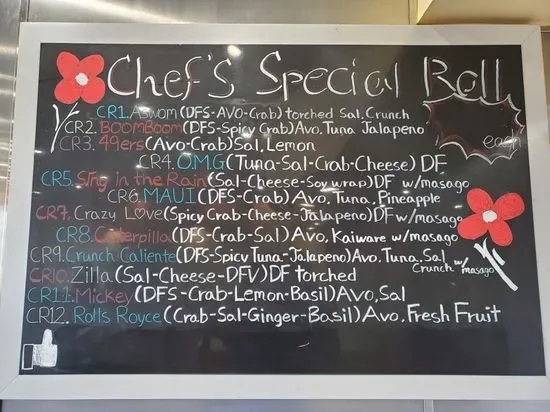 Chef's Special Roll
each
CR1. Aswom (DFS-Avo-Crab) torched Sal, Crunch
CR2. BOOMBoom (DFS-Spicy Crab) Avo, Tuna Jalapeno
CR3. 49ers (Avo-Crab) Sal, Lemon
CR4. O.M.G (Tuna-Sal-Crab-Cheese) DF
CR5. Sing in the Rain (Sal-Cheese-Soy wrap) DF w/masago
CR6. MAUI (DFS-Crab) Avo, Tuna, Pineapple
CR7. Crazy Love (Spicy Crab-Cheese-Jalapeno) DF w/masago
CR8. Caterpilla (DFS-Crab-Sal) Avo, Kaiware w/masago
CR9. Crunch Caliente (DFS-Spicy Tuna-Jalapeno) Avo, Tuna, Sal
Crunch w/masago
CR10. Zilla (Sal-Cheese-DFV) DF torched
CR11. Mickey (DFS-Crab-Lemon-Basil) Avo, Sal
CR12. Rolls Royce (Crab-Sal-Ginger-Basil) Avo, Fresh Fruit